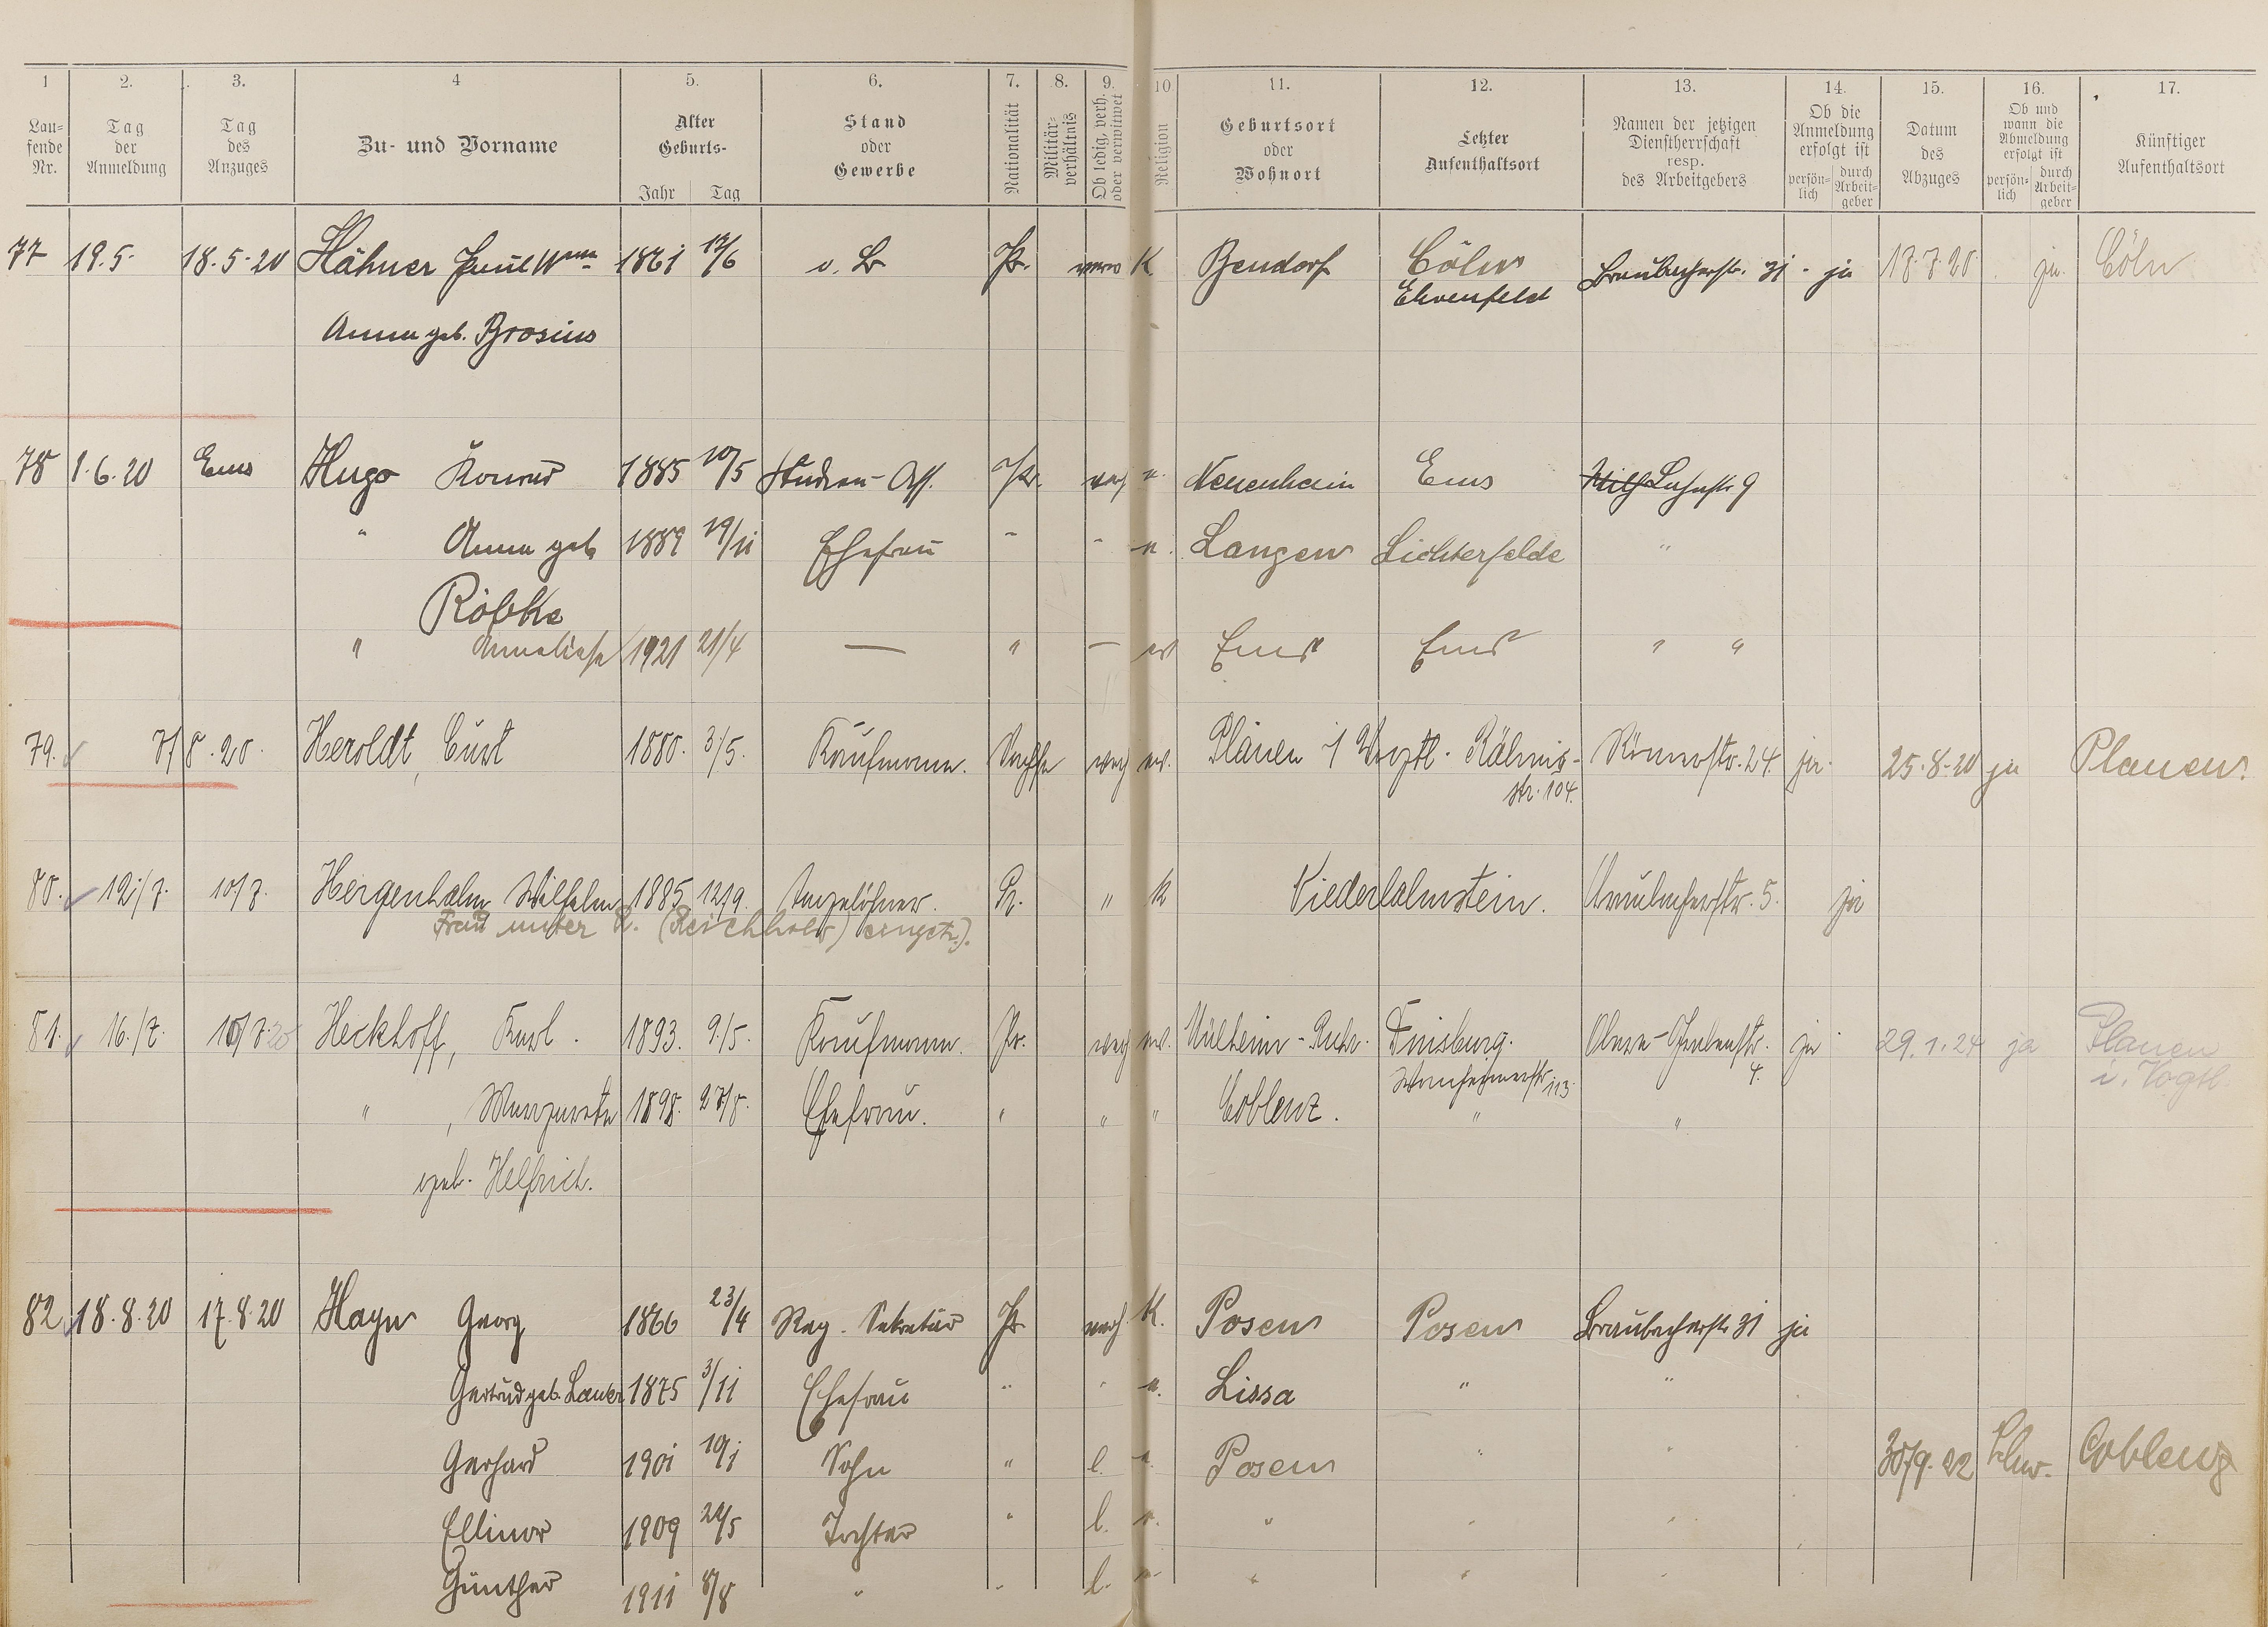 1 2. 3. 4 5. 6. 7. 8. 9. 10 11. 12. 13. 14. 15. 16. 17.
Lau-
fende
Nr.
Tag
der
Anmeldung
Tag
des
Anzuges
Zu- und Vorname
Alter
Geburts-
Jahr Tag
Stand
oder
Gewerbe
Nationalität
Militär-
verhältnis
Ob ledig, verh.
oder verwitwet
Religion
Geburtsort
oder
Wohnort
Letzter
Aufenthaltsort
Namen der jetzigen
Dienstherrschaft
resp.
des Arbeitgebers
Ob die
Anmeldung
erfolgt ist
persön-
lich
durch
Arbeit-
geber
Datum
des
Abzuges
Ob und
wann die
Abmeldung
erfolgt ist
persön-
lich
durch
Arbeit-
geber
Künftiger
Aufenthaltsort
77 19.5. 18.5.20 Hähner Paul Wwe 1861 12/6 o. B Pr. verw K. Bendorf Cöln Braubacherstr. 31 - ja 17.7.20 ja Cöln
Ehrenfeld
Anna geb. Brosius
78 1.6.20 Ems Hugo Konrad 1885 10/5 Studien-Ass. Pr. verh e. Neuenhain Ems Lahnstr 9
" Anna geb 1889 19/11 Ehefrau " " e. Langen Lichterfelde "
Röbke
" Anneliese 1921 21/4 — " — ev Ems Ems " "
79. 7/8.20. Heroldt, Curt 1880. 3/5. Kaufmann. Sachse verh ev. Plauen i Vogtl. Römerstr. 24. ja 25.8.20 ja Plauen
str. 104.
80. 12/7. 10/7. Hergenhahn Wilhelm 1885 12/9. Tagelöhner. Pr. " k Niederlahnstein. Braubacherstr. 5. ja
Frau unter R. (Reichhold) eingetr.).
81. 16./7. 10/7.20 Heckhoff, Karl. 1893. 9/5. Kaufmann. Pr. verh ev. Mülheim-Ruhr. Duisburg. Obere-Grabenstr. ja 29.1.24 ja Plauen
Wanheimerstr. 113. 4. i. Vogtl.
" , Margarete 1898. 27/8. Ehefrau. " " " Coblenz. " "
geb. Helfrich.
82 18.8.20 17.8.20 Hayn Georg 1866 23/4 Reg. Sekretär Pr verh K. Posen Posen Braubacherstr 31 ja
Gertrud geb. 1875 3/11 Ehefrau " " e. Lissa " "
Gerhard 1901 19/1 Sohn " l. e. Posen " " 30/9.22 Coblenz
Ellinor 1909 24/5 Tochter " l. e. " " "
Günther 1911 8/8 " " l. e. " " "